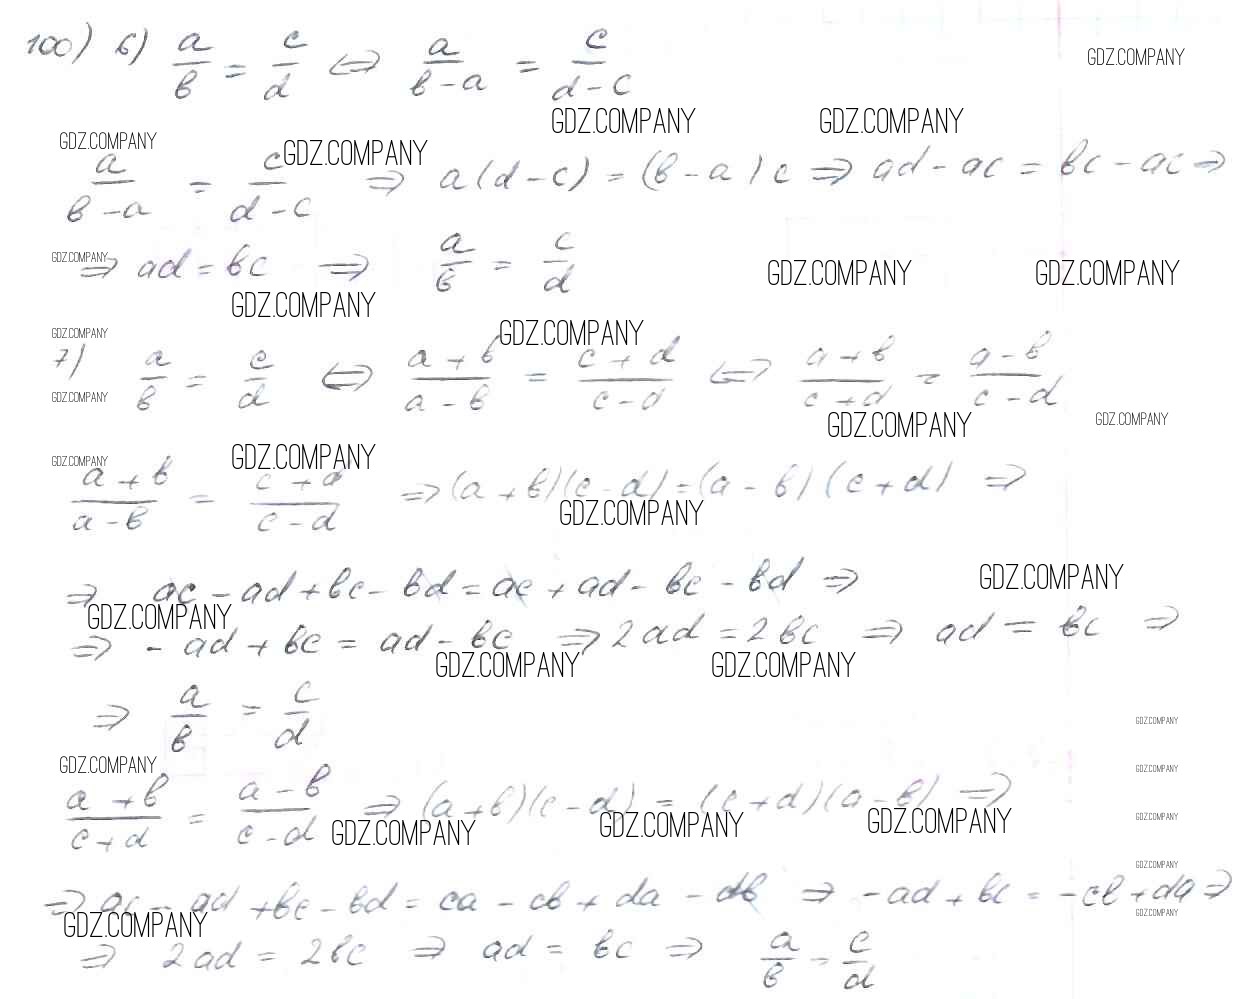 100) 6) a/b = c/d ⇔ a/(b-a) = c/(d-c)
GDZ.COMPANY
GDZ.COMPANY GDZ.COMPANY
GDZ.COMPANY GDZ.COMPANY
a/(b-a) = c/(d-c) ⇒ a(d-c) = (b-a)c ⇒ ad-ac = bc-ac ⇒
GDZ.COMPANY
⇒ ad = bc ⇒ a/b = c/d
GDZ.COMPANY GDZ.COMPANY
GDZ.COMPANY
GDZ.COMPANY GDZ.COMPANY
7) a/b = c/d ⇔ (a+b)/(a-b) = (c+d)/(c-d) ⇔ (a+b)/(c+d) = (a-b)/(c-d)
GDZ.COMPANY
GDZ.COMPANY GDZ.COMPANY
GDZ.COMPANY GDZ.COMPANY
(a+b)/(a-b) = (c+d)/(c-d) ⇒ (a+b)(c-d) = (a-b)(c+d) ⇒
GDZ.COMPANY
⇒ ac-ad+bc-bd = ac+ad-bc-bd ⇒
GDZ.COMPANY
GDZ.COMPANY
⇒ -ad+bc = ad-bc ⇒ 2ad = 2bc ⇒ ad = bc ⇒
GDZ.COMPANY GDZ.COMPANY
⇒ a/b = c/d
GDZ.COMPANY
GDZ.COMPANY GDZ.COMPANY
(a+b)/(c+d) = (a-b)/(c-d) ⇒ (a+b)(c-d) = (c+d)(a-b) ⇒
GDZ.COMPANY GDZ.COMPANY GDZ.COMPANY GDZ.COMPANY
GDZ.COMPANY
⇒ ac-ad+bc-bd = ca-cb+da-db ⇒ -ad+bc = -cb+da ⇒
GDZ.COMPANY GDZ.COMPANY
⇒ 2ad = 2bc ⇒ ad = bc ⇒ a/b = c/d